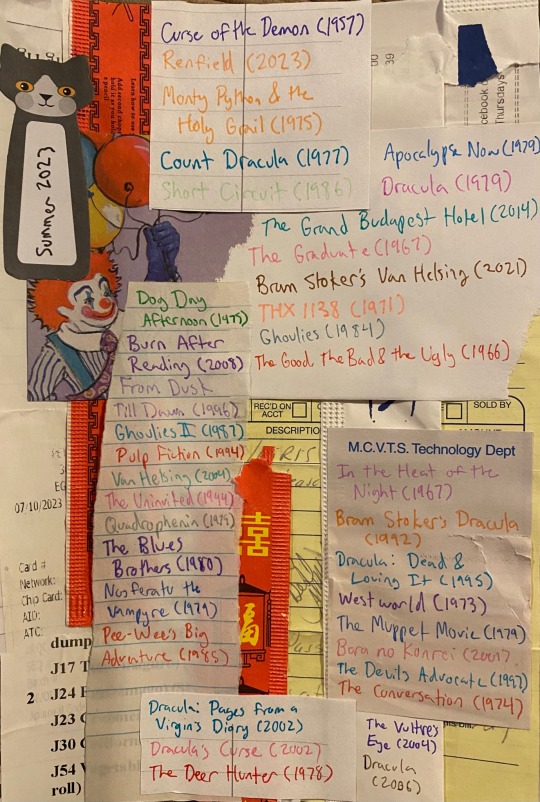 Curse of the Demon (1957)
Renfield (2023)
Monty Python & the
Holy Grail (1975)
Count Dracula (1977)
Short Circuit (1986)
Summer 2023
Learn how to use
Add second chops
hold it as you hold
a pencil
39
cebook
Thursdays
Apocalypse Now (1979)
Dracula (1979)
The Grand Budapest Hotel (2014)
The Graduate (1967)
Bram Stoker's Van Helsing (2021)
THX 1138 (1971)
Ghoulies (1984)
The Good, The Bad & the Ugly (1966)
Dog Day
Afternoon (1975)
Burn After
Reading (2008)
From Dusk
Till Dawn (1996)
Ghoulies II (1987)
Pulp Fiction (1994)
Van Helsing (2004)
The Uninvited (1944)
Quadrophenia (1979)
The Blues
Brothers (1980)
Nosferatu the
Vampyre (1979)
Pee-Wee's Big
Adventure (1985)
REC'D ON
ACCT
SOLD BY
DESCRIPTIO
M.C.V.T.S. Technology Dept
In the Heat of the
Night (1967)
Bram Stoker's Dracula
(1992)
Dracula: Dead &
Loving It (1995)
Westworld (1973)
The Muppet Movie (1979)
Bara no Konrei (2001)
The Devils Advocate (1997)
The Conversation (1974)
07/10/2023
Card #
Network:
Chip Card:
AID:
ATC:
dump
J17 T
2 J24 F
J23 C
J30 C
J54 V
roll)
囍
福
Dracula: Pages from a
Virgin's Diary (2002)
Dracula's Curse (2002)
The Deer Hunter (1978)
The Vulture's
Eye (2004)
Dracula
(2006)